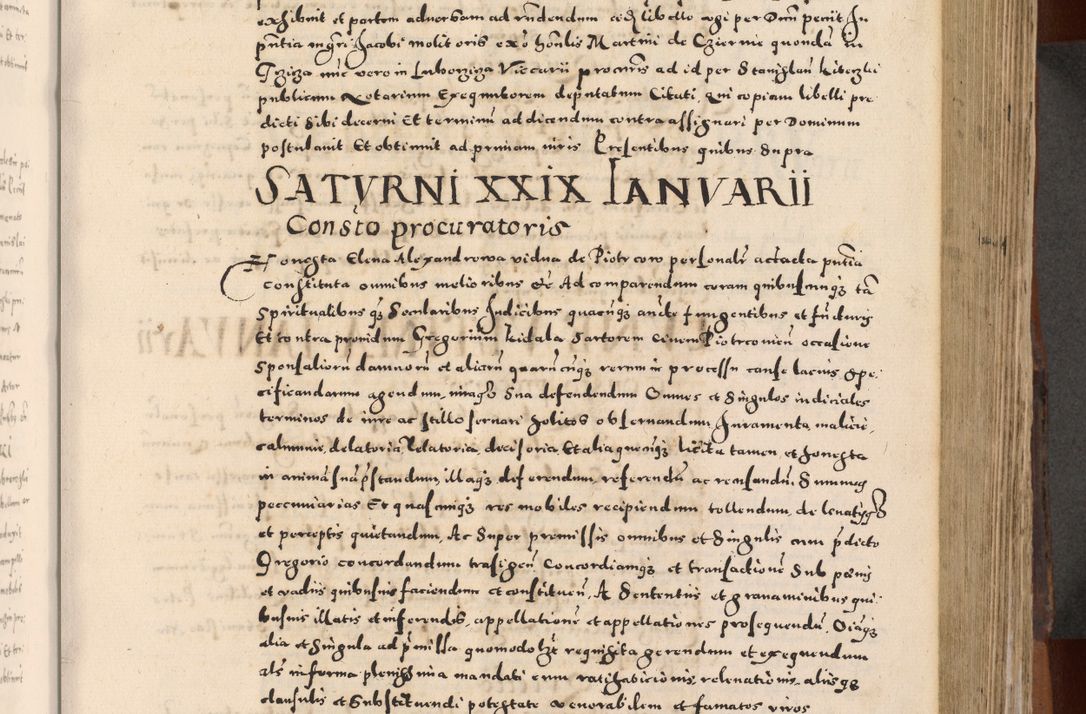 exhibuit et partem adversam ad rñdendum eidẽ libello cogi per Dñm petiit In
pñtia mgri Jacobi molitoris ex o honlis Martini de Cziernie quondã in
nũc vero in Luborziza Vicarii procuris ad id per Stanislaũ
publicum Notarium Exequutorem deputatum Citati, Qui copiam libelli pre
dicti Sibi decerni Et terminũ ad dicendum contra assignari per Dominum
postulavit Et obtinuit ad primam iuris Presentibus quibus Supra
SATVRNI XXIX IANVARII
Constõ procuratoris
Honesta Elena Alexandrowa vidua de Piotrcow personalr̃ acta acta pñtia
Constituta omnibus melioribus Ad comparendum coram quibuscunqȝ tã
Spiritualibus qȝ Secularibus Iudicibus quacũqȝ aũcte fungentibus et fũcturis
Et contra providum Gregorium Kidala Sartorem Civem Piotrcovieñ occasione
Sponsaliorũ damnorũ et aliarũ quarũcũqȝ rerum in processu cause lacius Spe
cificandarum agendum, iuraqȝ Sua defendendum Omnes et Singulos iudiciales
terminos de iure ac stillo servari Solitos observandum, Iuramenta malicie
calumnie, delatoria, Relatoria, decisoria, Et alia quecũqȝ licita tamen, et honesta
in animã suã pstandum, illaqȝ deferendum, referendũ ac recusandũ, Summas
peccuniarias Et quascũqȝ res mobiles recipiendum tollendum, de levatis
et perceptis quietandum, Ac Super premissis omnibus et Singulis cum pdicto
Gregorio concordandum trãsigeñ Concordiamqȝ et transactionẽ Sub penis
et vadiis quibusvis faciendum et constitueñ, A Sententiis et gravaminibus qui
busvis illatis et inferendis, appellationẽ et appellationes prosequendũ, Oĩaqȝ
alia et Singula ad pmissa quomodolȝt requisita gerendum et exequendum
als in forma plenissima mandati cum ratihabicionis, relevationis, aliisqȝ
clausulis et Substituendi potestate venerabilem et famatos viros